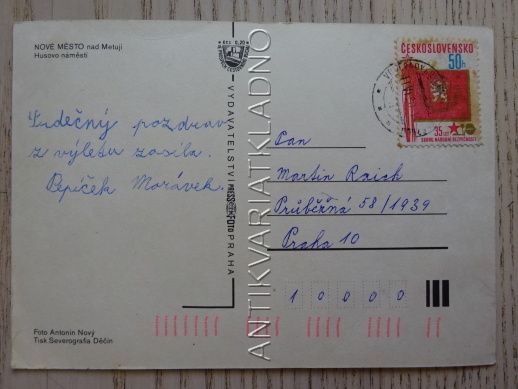 NOVÉ MĚSTO nad Metují
Husovo náměstí
Kčs 0,20
Srdečný pozdrav
z výletu zasílá
Pepíček Morávek.
VYDAVATELSTVÍ PRESSFOTO PRAHA
ANTIKVARIATKLADNO
ČESKOSLOVENSKO
50h
35 LET
SBORU NÁRODNÍ BEZPEČNOSTI
Pan
Martin Raich
Průběžná 58/1939
Praha 10
10000
Foto Antonín Nový
Tisk Severografia Děčín